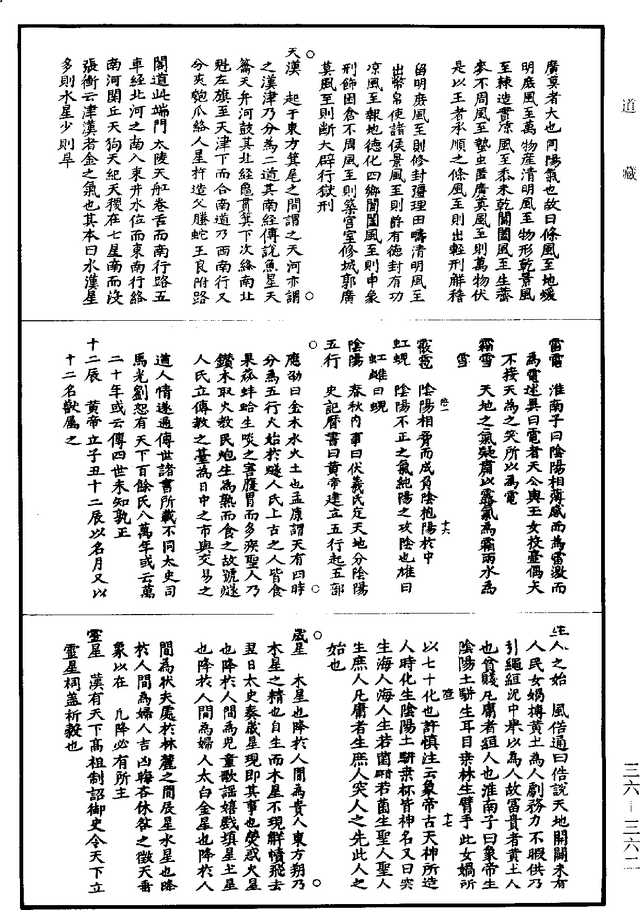 道藏
廣莫者大也同陽氣也故曰條風至地煖
明庶風至萬物產清明風至物形乾景風
至棘造實涼風至黍禾乾閶闔風至生薺
麥不周風至蟄虫匿廣莫風至則萬物伏
是以王者承順之條風至則出輕刑解稽
留明庶風至則修封疆理田疇清明風至
出幣帛使諸侯景風至則辞有德封有功
凉風至報地德化四鄉閶闔風至則申象
刑飾囷倉不周風至則築宮室修城郭廣
莫風至則断大辟行獄刑
天漢　起于東方箕尾之間謂之天河亦謂
之漢津乃分為二道其南經傳說魚星天
籥天弁河鼓其北經龜貫箕下次絡南北
魁左旗至天津下而合南道乃西南行又
分夾匏瓜絡人星杵造父螣蛇王良附路
閣道此端門太陵天舡卷舌而南行路五
車經北河之南入東井水位而東南行絡
南河闕丘天狗天紀天稷在七星南而沒
張衡云津漢者金之氣也其本曰水漢星
多則水星少則旱
雷電　淮南子曰陰陽相薄感而為雷激而
為電述異曰電者天公與玉女投壺偶失
不接天為之笑所以為電
霜雪　天地之氣凝肅以露氣為霜雨水為
雪
霰雹　陰陽相脅而成負陰抱陽於中
虹蜺　陰陽不正之氣純陽之攻陰也雄曰
虹雌曰蜺
陰陽　春秋內事曰伏羲氏定天地分陰陽
五行　史記曆書曰黃帝建立五行起五部
應劭曰金木水火土也孟康謂天有四時
分為五行火始於燧人氏上古之人皆食
果蓏蚌蛤生啖之害腹胃而多疾聖人乃
鑽木取火教民炮生為熟而食之故號燧
人氏立傳教之臺為日中之市與交易之
道人情遂通傳世諸書所載不同太史司
馬光劉恕有天下百餘氏八萬年或云萬
二十年或云傳四世未知孰正
十二辰　黃帝立子丑十二辰以名月又以
十二名獸屬之
生人之始　風俗通曰俗說天地開闢未有
人民女媧摶黃土為人劇務力不暇供乃
引繩絙泥中舉以為人故富貴者黃土人
也貧賤凡庸者絙人也淮南子曰象帝生
陰陽土駢生耳目桒林生臂手此女媧所
以七十化也許慎注云象帝古天神所造
人時化生陰陽土駢桒林皆神名又曰突
生海人海人生若菌若菌生聖人聖人
生庶人凡庸者生庶人突人之先此人之
始也
歲星　木星也降於人間為貴人東方朔乃
木星之精也自生而木星不現解幘飛去
翌日太史奏歲星現即其事也熒惑火星
也降於人間為兒童歌謠嬉戲填星土星
也降於人間為婦人太白金星也降於人
間為狀夫處於林麓之間辰星水星也降
於人間為婦人吉凶晦吝休咎之徵天垂
象以在　凢降必有所主
靈星　漢有天下高祖制詔御史令天下立
靈星祠蓋祈穀也
三六—三六二